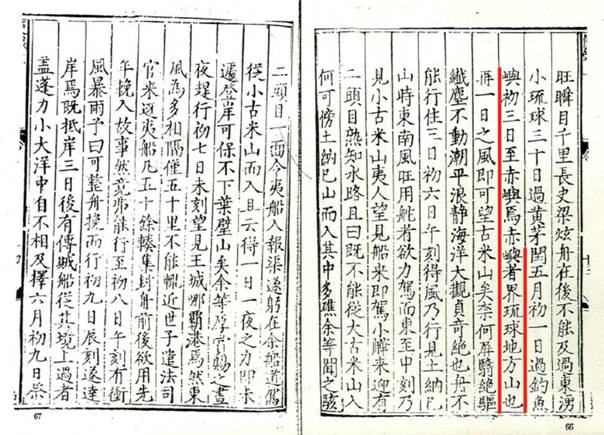 旺瞬目千里長史梁炫舟在後不能及過東湧
小琉球三十日過黃茅閏五月初一日過釣魚
嶼初三日至赤嶼焉赤嶼者界琉球地方山也
再一日之風即可望古米山矣奈何屏翳絕驅
纖塵不動潮平浪靜海洋大觀真奇絕也舟不
能行住三日初六日午刻得風乃行見土納巳
山時東南風旺用舵者欲力駕而東至申刻乃
見小古米山夷人望見船來即駕小來迎有
二頭目熟知水路且曰既不能從大古米山入
何可傍土納巳山而入其中多礁余等聞之駭
66
二頭目一面令夷船入報渠遂躬在余船道駕
從小古米山而入且云得一日一夜之力即未
遽登岸可保不下葉壁山矣余等厚賞賜之晝
夜趕行初七日未刻望見王城那霸港焉然東
風為多相隔僅五十里不能輒近世子遣法司
官來迓夷船凡五十餘艘集封舟前後欲用先
年挽入故事然竟弗能行至初八日午刻有衝
風暴雨予曰可整舟挽而行初九日辰刻遂達
岸焉既抵岸三日後有傳賊船從其境上過者
蓋蓬力小大洋中自不相及擇六月初九日祭
67